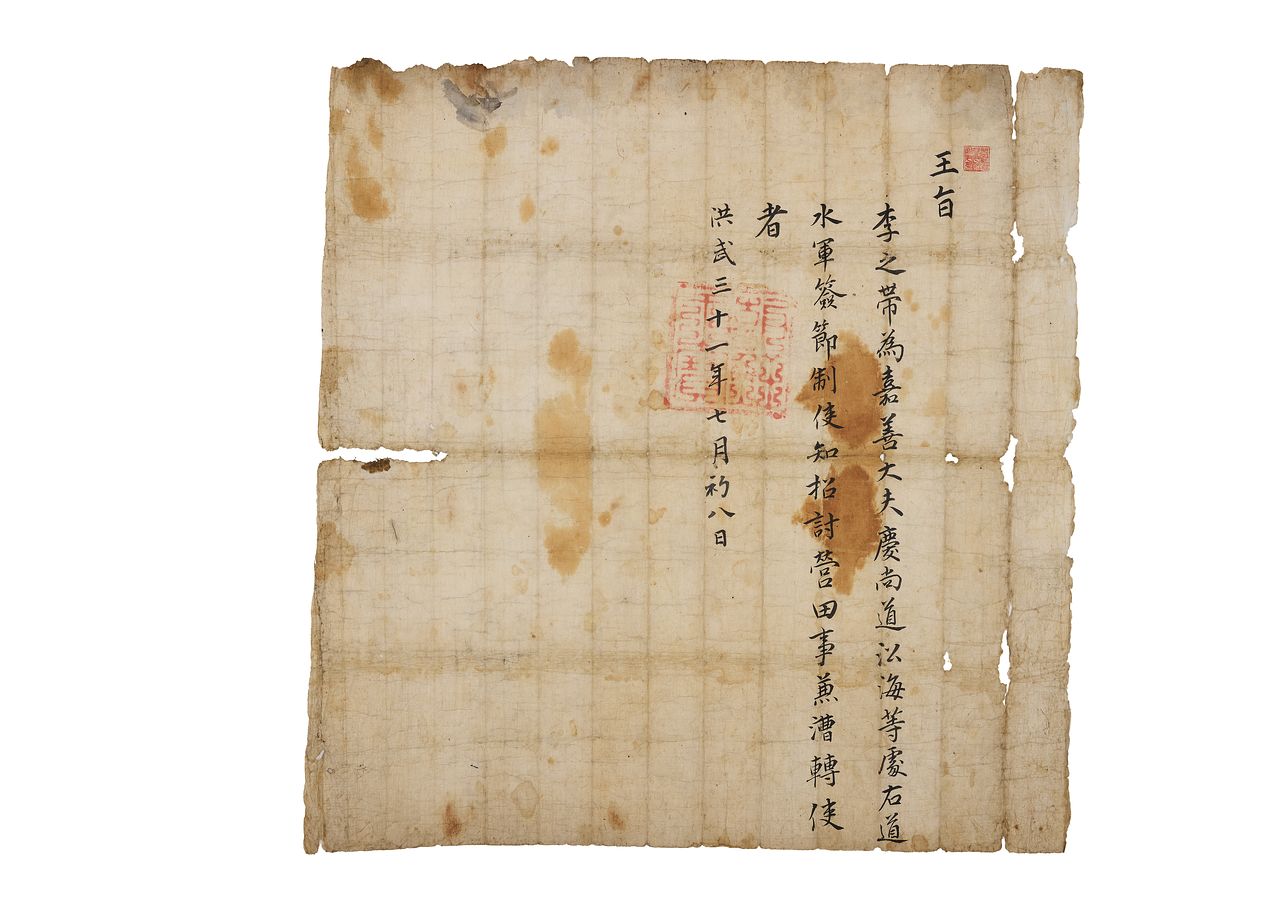 王旨
李之帶為嘉善大夫慶尚道㳂海等處右道
水軍簽節制使知招討營田事兼漕轉使
者
洪武三十一年七月初八日